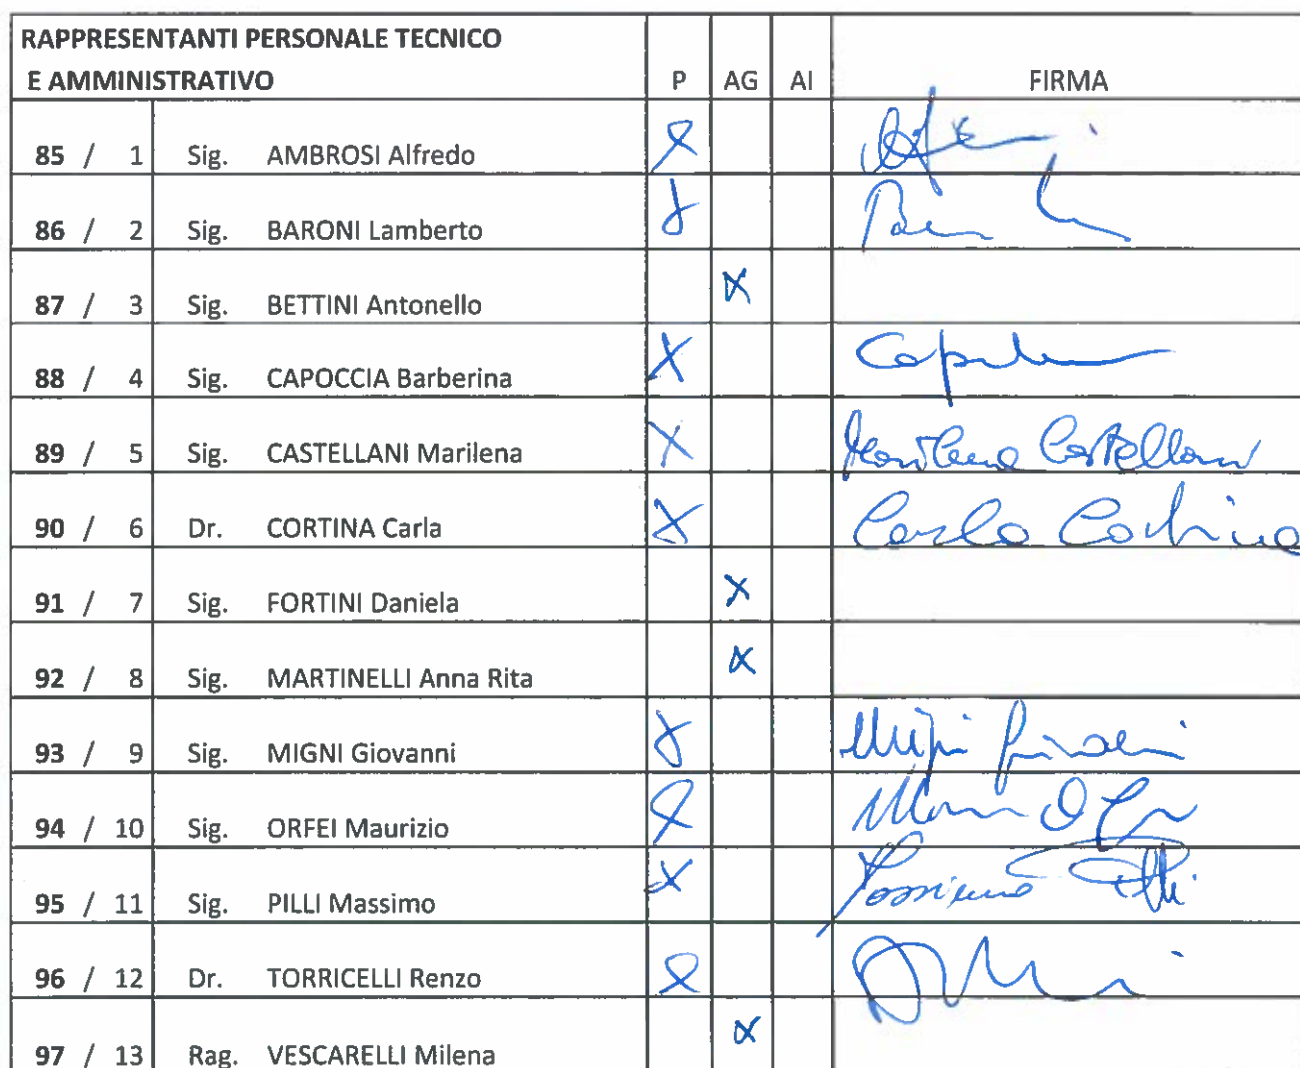 RAPPRESENTANTI PERSONALE TECNICO
E AMMINISTRATIVO P AG AI FIRMA
85 / 1 Sig. AMBROSI Alfredo X
86 / 2 Sig. BARONI Lamberto X
87 / 3 Sig. BETTINI Antonello X
88 / 4 Sig. CAPOCCIA Barberina X
89 / 5 Sig. CASTELLANI Marilena X Marilena Castellani
90 / 6 Dr. CORTINA Carla X Carla Cortina
91 / 7 Sig. FORTINI Daniela X
92 / 8 Sig. MARTINELLI Anna Rita X
93 / 9 Sig. MIGNI Giovanni X Migni Giovanni
94 / 10 Sig. ORFEI Maurizio X
95 / 11 Sig. PILLI Massimo X Massimo Pilli
96 / 12 Dr. TORRICELLI Renzo X
97 / 13 Rag. VESCARELLI Milena X